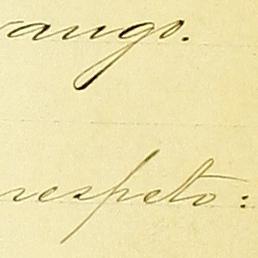 rango.
respeto: